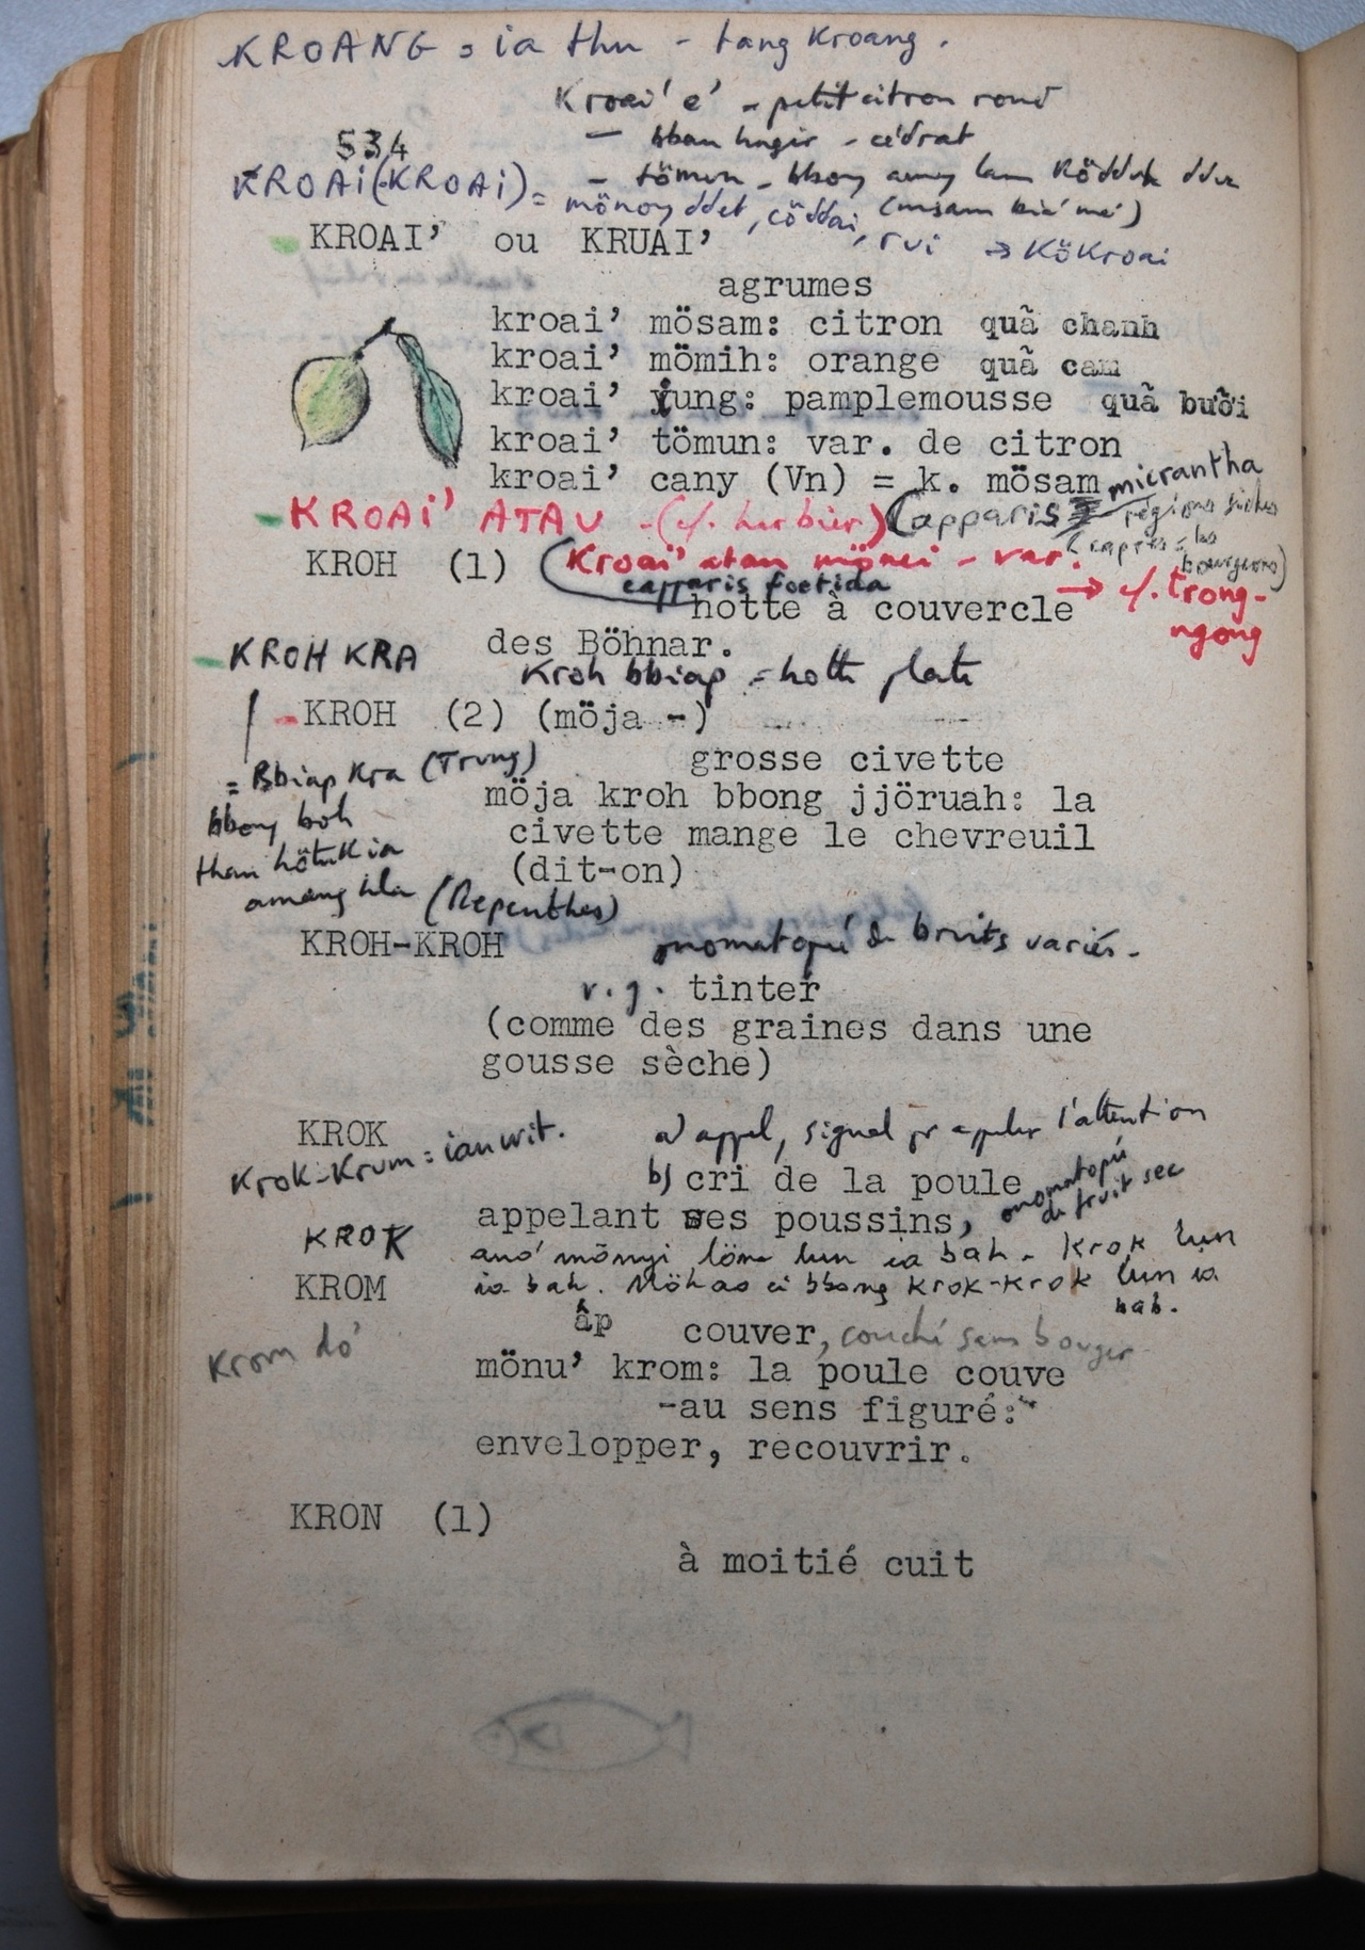 KROANG = ia thu - tang kroang.
Kroai' e' - petit citron rond
- bban hngir - cédrat
534
- tömun - bbong amang lam Ködduh
KROAI (KROAI) = mönoy ddet, cöddai, rui → KöKroai
(msam biă mĕ)
KROAI' ou KRUAI'
agrumes
kroai' mösam: citron quã chanh
kroai' mömih: orange quã cam
kroai' yung: pamplemousse quã bưỡi
kroai' tömun: var. de citron
kroai' cany (Vn) = k. mösam
KROAI' ATAU - (cf. herbier) (capparis micrantha
régions sèches
(capres = les bourgeons)
KROH (1) (Kroai' atau mönei - var.
capparis foetida
→ cf. trong-ngong
hotte à couvercle
des Böhnar.
KROH KRA
Kroh bbiap = hotte plate
KROH (2) (möja -)
grosse civette
= Bbiap Kra (Trung)
möja kroh bbong jjöruah: la
bbong boh
civette mange le chevreuil
than hötuk ia
(dit-on)
amang hla (Nepenthes)
KROH-KROH onomatopé de bruits variés -
v.g. tinter
(comme des graines dans une
gousse sèche)
KROK a) appel, signal pr appeler l'attention
Krok-Krum = ian wit.
b) cri de la poule
appelant ses poussins, onomatopé de fruit sec
KROK anö' mönyi löm lun ia bah - Krok lun
KROM ia bah. Möhao ci bbong Krok-Krok lun ia
bah.
âp couver, couché sans bouger
Krom dö'
mönu' krom: la poule couve
-au sens figuré:
envelopper, recouvrir.
KRON (1)
à moitié cuit